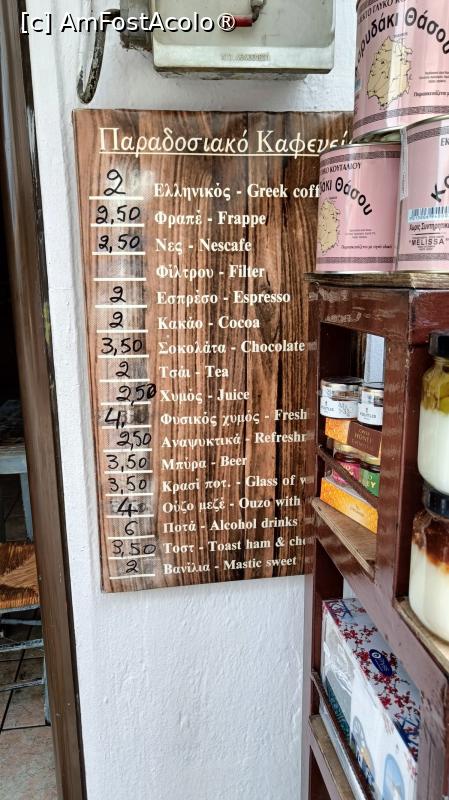 [c] AmFostAcolo®
Παραδοσιακό Καφενεί
2 Ελληνικός - Greek coff
2,50 Φραπέ - Frappe
2,50 Νες - Nescafe
Φίλτρου - Filter
2 Εσπρέσο - Espresso
2 Κακάο - Cocoa
3,50 Σοκολάτα - Chocolate
2 Τσάι - Tea
2,50 Χυμός - Juice
4, Φυσικός χυμός - Fresh
2,50 Αναψυκτικά - Refreshm
3,50 Μπύρα - Beer
3,50 Κρασί ποτ. - Glass of w
4 Ούζο μεζέ - Ouzo with
6 Ποτά - Alcohol drinks
3,50 Τοστ - Toast ham & che
2 Βανίλια - Mastic sweet
ΓΛΥΚΟ ΚΟΥΤΑΛΙΟΥ
υδάκι Θάσου
ΚΟ ΚΟΥΤΑΛΙΟΥ
άκι Θάσου
ΕΚ
Κα
Χωρίς Συντηρητικά
"MELISSA"
HONEY